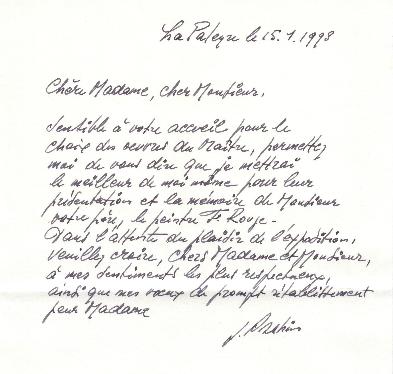 La Paleyre le 15.1.1998
Chère Madame, cher Monsieur,
Sensible à votre accueil pour le
choix des œuvres du Maître, permettez
moi de vous dire que je mettrai
le meilleur de moi même pour leur
présentation et la mémoire de Monsieur
votre père, le peintre F. Rouge -
Dans l'attente du plaisir de l'exposition,
veuillez croire, chers Madame et Monsieur,
à mes sentiments les plus respectueux,
ainsi que mes vœux de prompt rétablissement
pour Madame
J.